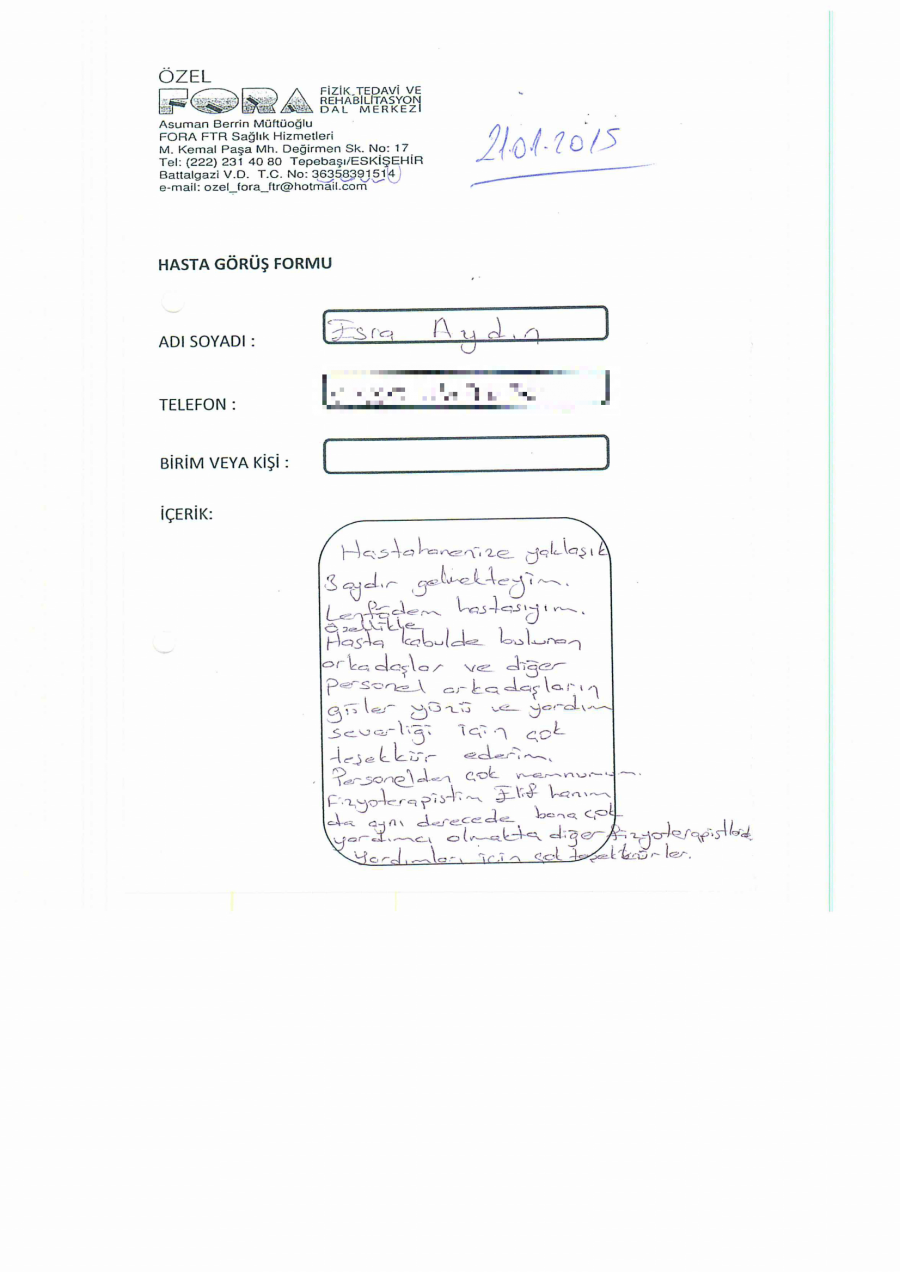 ÖZEL
FORA FİZİK TEDAVİ VE
REHABİLİTASYON
DAL MERKEZİ
Asuman Berrin Müftüoğlu
FORA FTR Sağlık Hizmetleri
M. Kemal Paşa Mh. Değirmen Sk. No: 17
Tel: (222) 231 40 80 Tepebaşı/ESKİŞEHİR
Battalgazi V.D. T.C. No: 36358391514
e-mail: ozel_fora_ftr@hotmail.com
21.01.2015
HASTA GÖRÜŞ FORMU
ADI SOYADI : Esra Aydın
TELEFON :
BİRİM VEYA KİŞİ :
İÇERİK:
Hastahanenize yaklaşık
3 aydır gelmekteyim.
Lenfödem hastasıyım.
özellikle
Hasta kabulde bulunan
arkadaşlar ve diğer
personel arkadaşların
güler yüzü ve yardım
severliği için çok
teşekkür ederim.
Personelden çok memnunum.
Fizyoterapistim Elif hanım
da aynı derecede bana çok
yardımcı olmakta diğer
yardımları için çok teşekkürler.